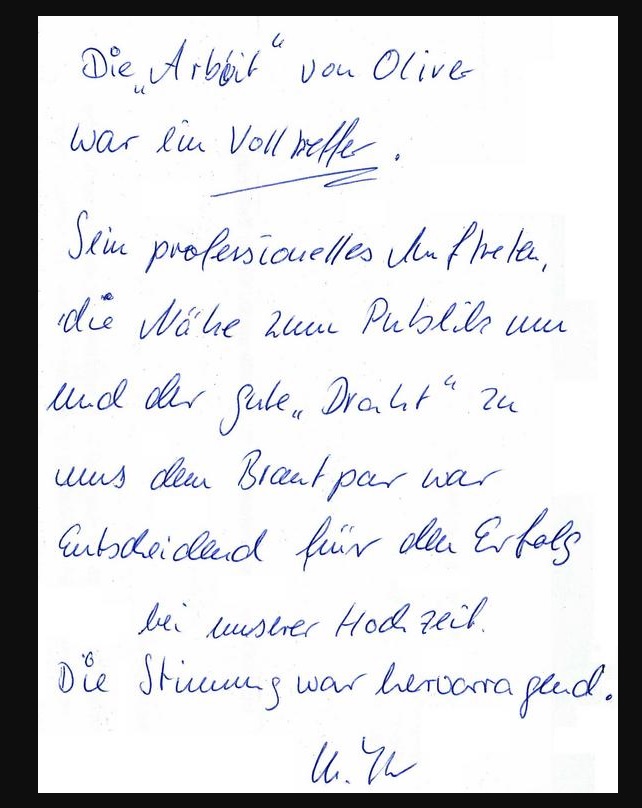 Die „Arbeit“ von Oliver
war ein Volltreffer.
Sein professionelles Auftreten,
die Nähe zum Publikum
und der gute „Draht“ zu
uns dem Brautpaar war
Entscheidend für den Erfolg
bei unserer Hochzeit.
Die Stimmung war hervorragend.